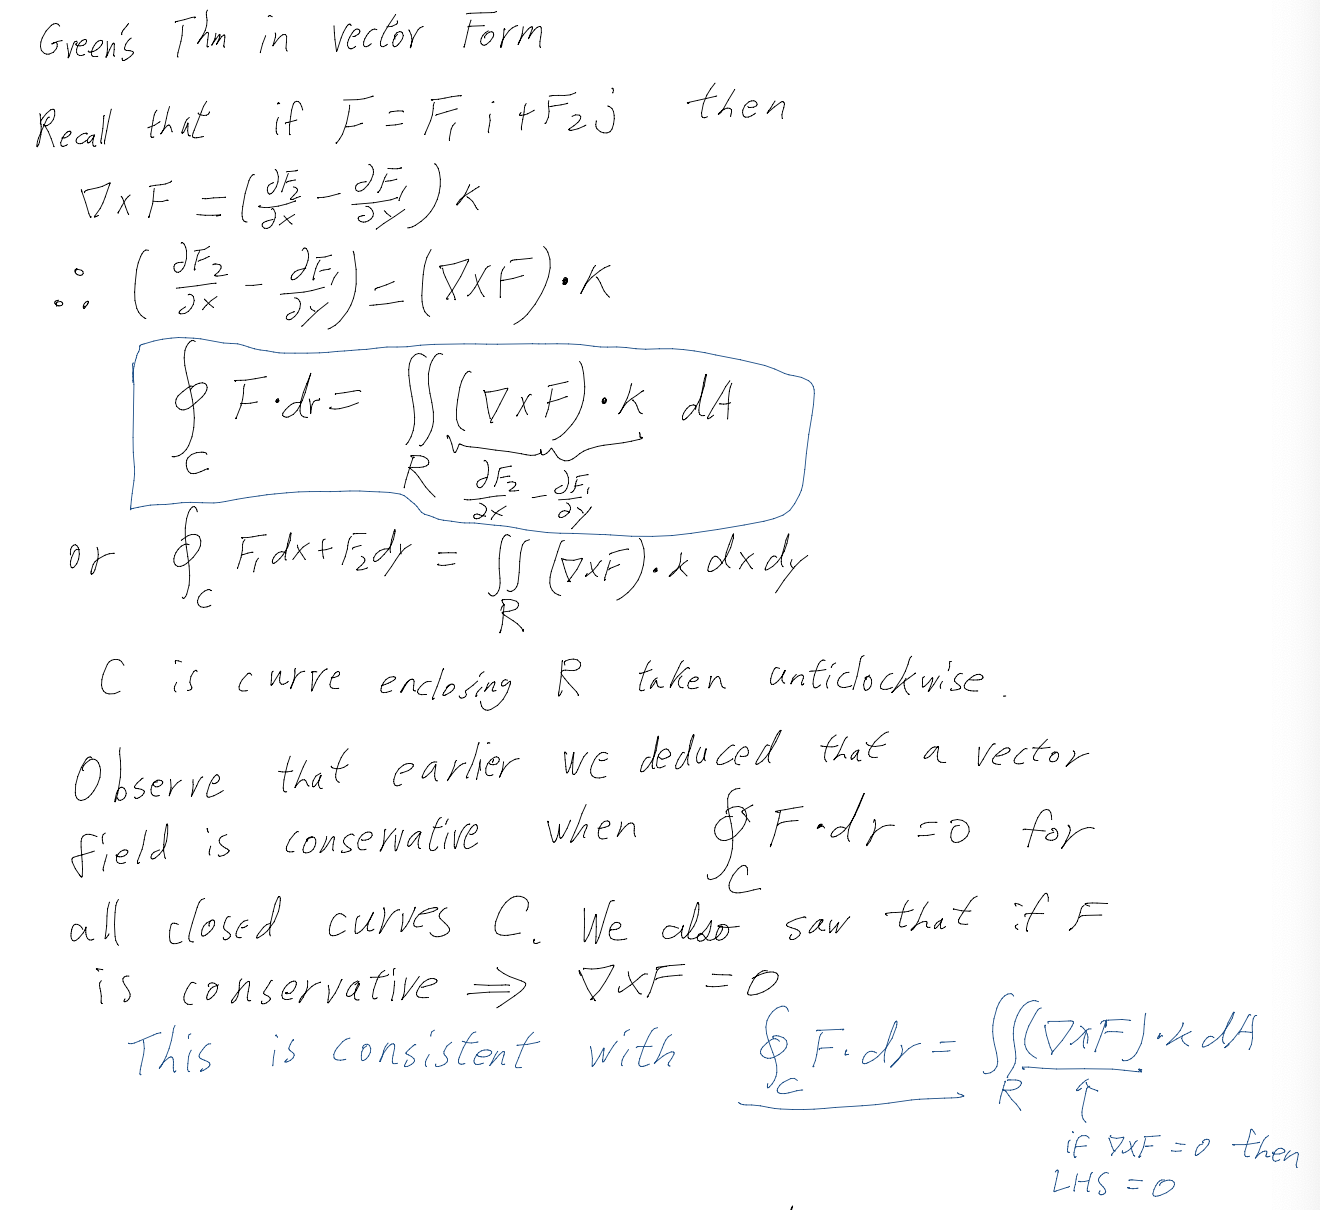 Green's Thm in vector Form
Recall that if F = F₁ i + F₂ j then
∇×F = (∂F₂/∂x − ∂F₁/∂y) k
∴ (∂F₂/∂x − ∂F₁/∂y) = (∇×F)·k
∮_C F·dr = ∬_R (∇×F)·k dA
∂F₂/∂x − ∂F₁/∂y
or ∮_C F₁dx + F₂dy = ∬_R (∇×F)·k dxdy
C is curve enclosing R taken anticlockwise.
Observe that earlier we deduced that a vector
field is conservative when ∮_C F·dr = 0 for
all closed curves C. We also saw that if F
is conservative ⇒ ∇×F = 0
This is consistent with ∮_C F·dr = ∬_R (∇×F)·k dA
↑
if ∇×F = 0 then
LHS = 0